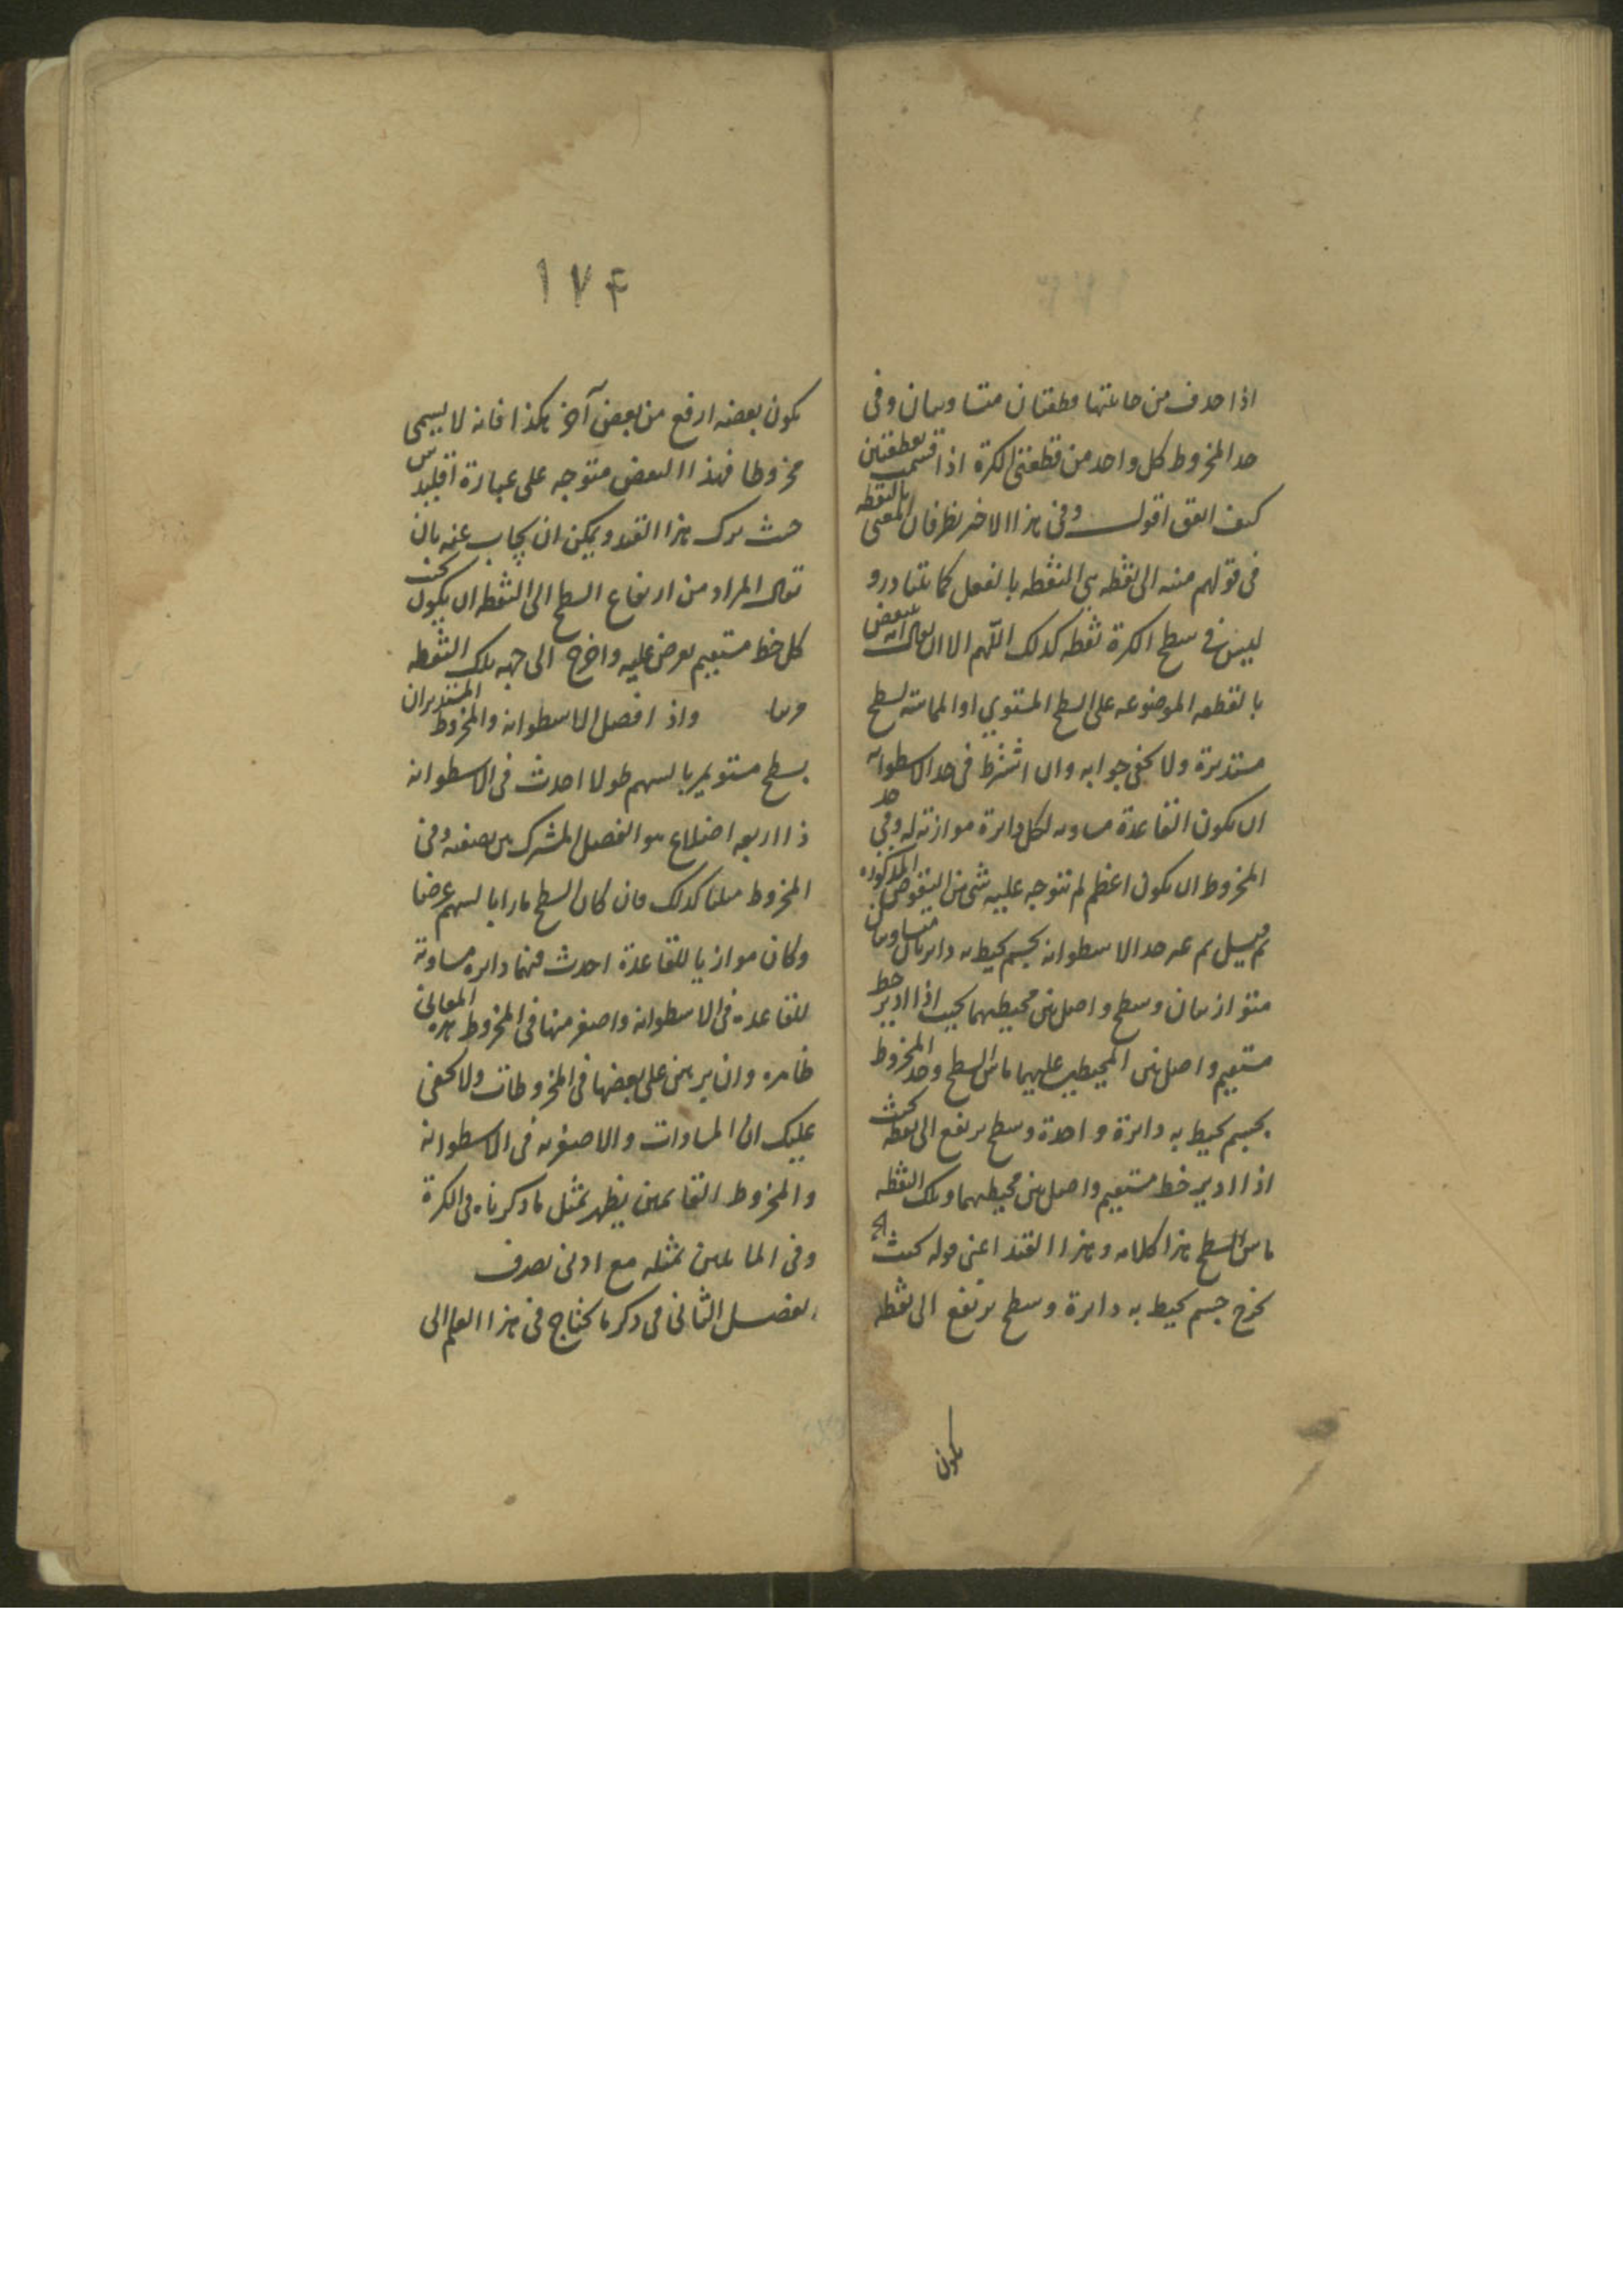 اذا حدف من حاعتها قطعتان متساويتان وفي
حد المخروط كل واحد من قطعتي الكرة اذا قسمت بقطعتين
كيف اتفق اقول وفي هذا الاخير نظر فان المعنى بالنقطه
في قولهم منه الى نقطه هي النقطه بالفعل كما يتبادر و
ليس في سطح الكرة نقطه كذلك اللهم الا ان يقال انه
بالقطعه الموضوعه على السطح المستوي او المماسه لسطح
مستديرة ولا يخفى جوابه وان اشترط في حد الاسطوانه
ان يكون القاعدة مساويه لكل دايرة موازيه له وفي حد
المخروط ان يكون اعظم لم يتوجه عليه شئ من النقوض المذكوره
ثم قيل لم عرف حد الاسطوانه بجسم يحيط به دايرتان متساويتان
متوازيتان وسطح واصل بين محيطيهما بحيث اذا ادير خط
مستقيم واصل بين المحيطين عليهما ماس السطح وحد المخروط
بجسم يحيط به دايرة واحدة وسطح يرتفع الى نقطه بحيث
اذا ادير خط مستقيم واصل بين محيطهما وتلك النقطه
ماس السطح هذا كلامه وهذا القيد اعني قوله بحيث
يخرج جسم يحيط به دايرة وسطح يرتفع الى نقطه
يكون
١٧۴
يكون بعضه ارفع من بعض آخر هكذا فانه لا يسمى
مخروطا فهذا النقض متوجه على عبارة اقليدس
حيث ترك هذا القيد ويمكن ان يجاب عنه بان
يقال المراد من ارتفاع السطح الى النقطه ان يكون بحيث
كل خط مستقيم يفرض عليه واخرج الى جهه تلك النقطه
مر بها واذا فصل الاسطوانه والمخروط المستديران
بسطح مستو يمر بالسهم طولا احدث في الاسطوانه
ذا اربعه اضلاع هو الفصل المشترك بين نصفيه وفي
المخروط مثلثا كذلك فان كان السطح مارا بالسهم عرضا
وكان موازيا للقاعدة احدث فيهما دايره مساويه
للقاعده في الاسطوانه واصغر منها في المخروط هذه المعاني
ظاهره وان برهن على بعضها في المخروطات ولا يخفى
عليك ان المساوات والاصغريه في الاسطوانه
والمخروط القايمين يظهر بمثل ما ذكرناه في الكرة
وفي المايلين بمثله مع ادنى تصرف
الفصل الثاني في ذكر ما يحتاج في هذا العلم الى